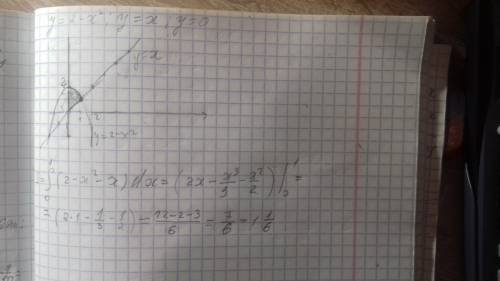 y=2-x², y=x, y=0
y=x
2
y=2-x²
= ∫₀¹ (2-x²-x) dx = (2x - x³/3 - x²/2) |₀¹ =
= (2·1 - 1/3 - 1/2) = (12-2-3)/6 = 7/6 = 1 1/6